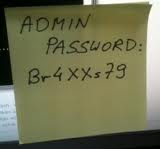 ADMIN
PASSWORD:
Br4XXs79